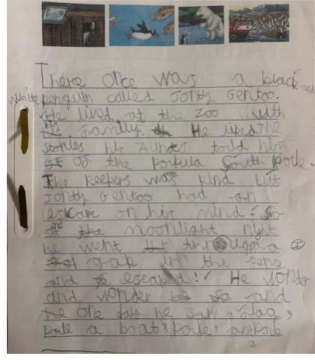 There once was a black and
white penguin called Jonty Gentoo.
He lived at the zoo with
his family. He liked the
stories his Aunts told him
of the South pole
The keepers was kind but
Jonty Gentoo had an
escape on his mind! So
the moonlight night
he went through a
gap in the fence
and escaped! He
and and
one day he saw a flag,
a boat, pole,
a